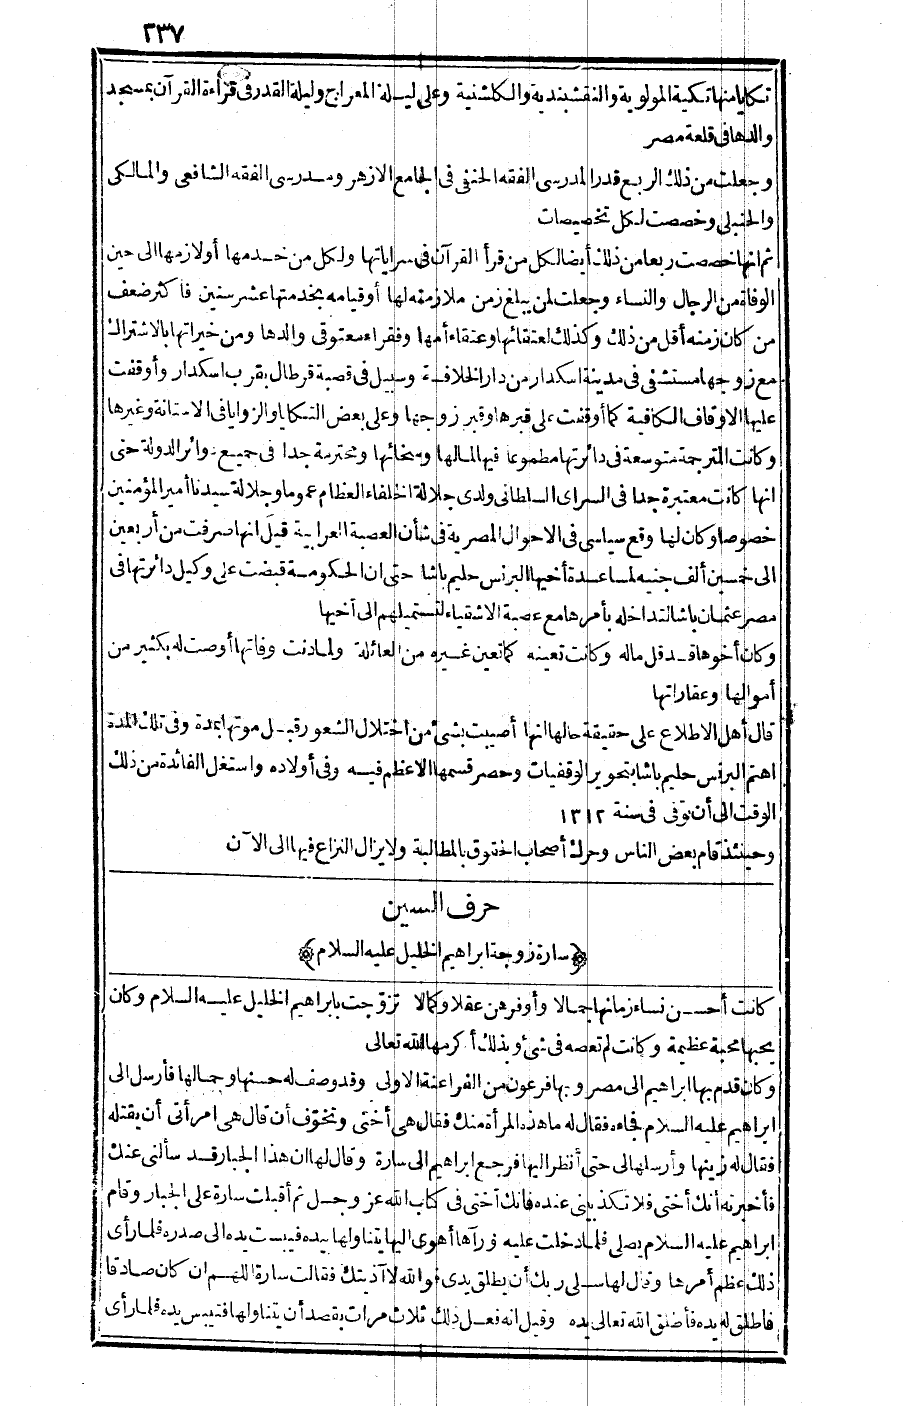 ٢٣٧
تكايا منها تكية المولوية والنقشبندية والكلشنية وعلى ليلة المعراج وليلة القدر فى قراءة القرآن بمسجد
والدها فى قلعة مصر
وجعلت من ذلك الريع قدرا لمدرسى الفقه الحنفى فى الجامع الازهر ومدرسى الفقه الشافعى والمالكى
والحنبلى وخصصت لكل تخصيصات
ثم انها خصصت ريعا من ذلك أيضا لكل من قرأ القرآن فى سراياتها ولكل من خدمها أو لازمها الى حين
الوفاة من الرجال والنساء وجعلت لمن يبلغ زمن ملازمته لها أو قيامه بخدمتها عشر سنين فاكثر ضعف
من كان زمنه أقل من ذلك وكذلك لعتقائها وعتقاء أمها وفقراء معتوقى والدها ومن خيراتها بالاشتراك
مع زوجها مستشفى فى مدينة اسكدار من دار الخلافة وسبيل فى قصبة قرطال بقرب اسكدار وأوقفت
عليها الاوقاف الكافية كما أوقفت على قبرها وقبر زوجها وعلى بعض التكايا والزوايا فى الاستانة وغيرها
وكانت المترجمة متوسعة فى دائرتها مطموعا فيها لمالها وسخائها ومحترمة جدا فى جميع دوائر الدولة حتى
انها كانت معتبرة جدا فى السراى السلطانى ولدى جلالة الخلفاء العظام عموما وجلالة سيدنا أمير المؤمنين
خصوصا وكان لها وقع سياسى فى الاحوال المصرية فى شأن العصبة العرابية قيل انها صرفت من أربعين
الى خمسين ألف جنيه لمساعدة أخيها البرنس حليم باشا حتى ان الحكومة قبضت على وكيل دائرتها فى
مصر عثمان باشا لتداخله بأمرها مع عصبة الاشقياء لتستميلهم الى أخيها
وكان أخوها قد قل ماله وكانت تعينه كما تعين غيره من العائلة ولما دنت وفاتها أوصت له بكثير من
أموالها وعقاراتها
قال أهل الاطلاع على حقيقة حالها انها أصيبت بشئ من اختلال الشعور قبل موتها بمدة وفى تلك المدة
اهتم البرنس حليم باشا بتحوير الوقفيات وحصر قسمها الاعظم فيه وفى أولاده واستغل الفائدة من ذلك
الوقت الى أن توفى فى سنة ١٣١٢
وحينئذ قام بعض الناس وحرك أصحاب الحقوق بالمطالبة ولا يزال النزاع فيها الى الآن
حرف السين
﴿سارة زوجة ابراهيم الخليل عليه السلام﴾
كانت أحسن نساء زمانها جمالا وأوفرهن عقلا وكمالا تزوّجت بابراهيم الخليل عليه السلام وكان
يحبها محبة عظيمة وكانت لم تعصه فى شئ وبذلك أكرمها الله تعالى
وكان قدم بها ابراهيم الى مصر وبها فرعون من الفراعنة الاولى وقد وصف له حسنها وجمالها فأرسل الى
ابراهيم عليه السلام فجاءه فقال له ما هذه المرأة منك فقال هى أختى وتخوّف أن قال هى امرأتى أن يقتله
فقال له زينها وأرسلها الى حتى أنظر اليها فرجع ابراهيم الى سارة وقال لها ان هذا الجبار قد سألنى عنك
فأخبرته أنك أختى فلا تكذبينى عنده فانك أختى فى كتاب الله عز وجل ثم أقبلت سارة على الجبار وقام
ابراهيم عليه السلام يصلى فلما دخلت عليه ورآها أهوى اليها يتناولها بيده فيبست يده الى صدره فلما رأى
ذلك عظم أمرها وقال لها سلى ربك أن يطلق يدى فوالله لا آذيتك فقالت سارة اللهم ان كان صادقا
فاطلق له يده فأطلق الله تعالى يده وقيل انه فعل ذلك ثلاث مرات يقصد أن يتناولها فتيبس يده فلما رأى